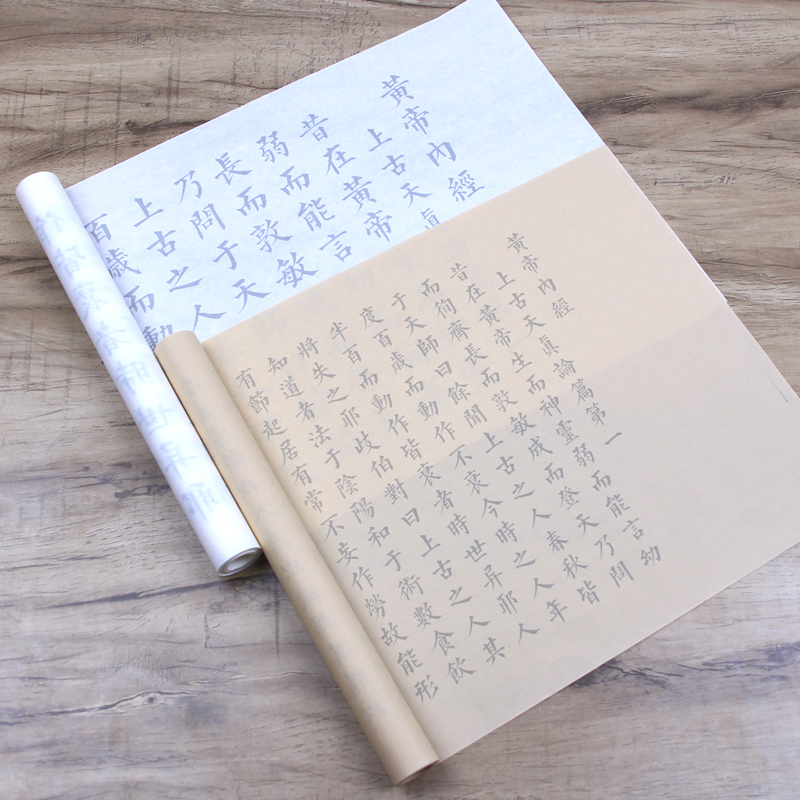 黃帝內經
上古天貞
昔在黃帝
弱而能言
長而敦敏
乃問于天
上古之人
百歲而動
黃帝內經
上古天貞論篇第一
昔在黃帝生而神靈弱而能言幼
而徇齊長而敦敏成而登天乃問
于天師曰餘聞上古之人春秋皆
度百歲而動作不衰今時之人年
半百而動作皆衰者時世异耶人
將失之耶歧伯對曰上古之人其
知道者法于陰陽和于術數食飲
有節起居有常不妄作勞故能形